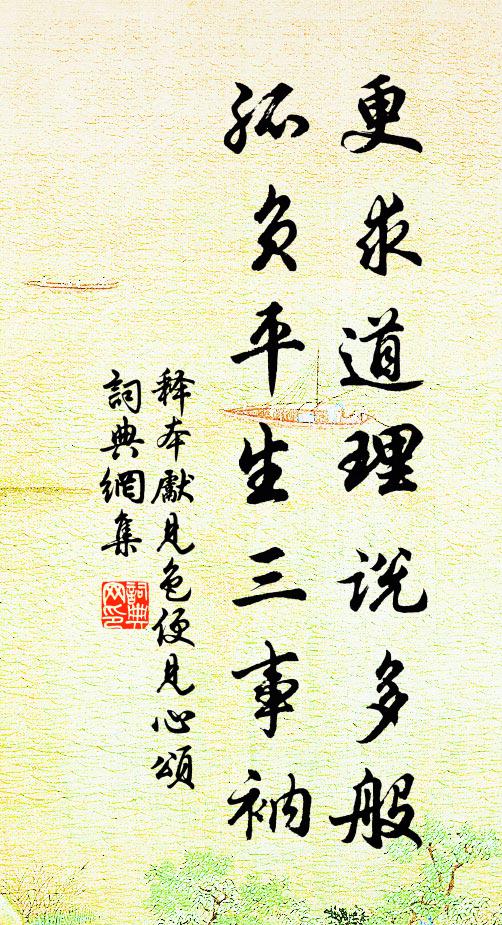 更求道理说多般
孤负平生三事衲
释本獻见色便见心頌
詞典網集
詞典
网印